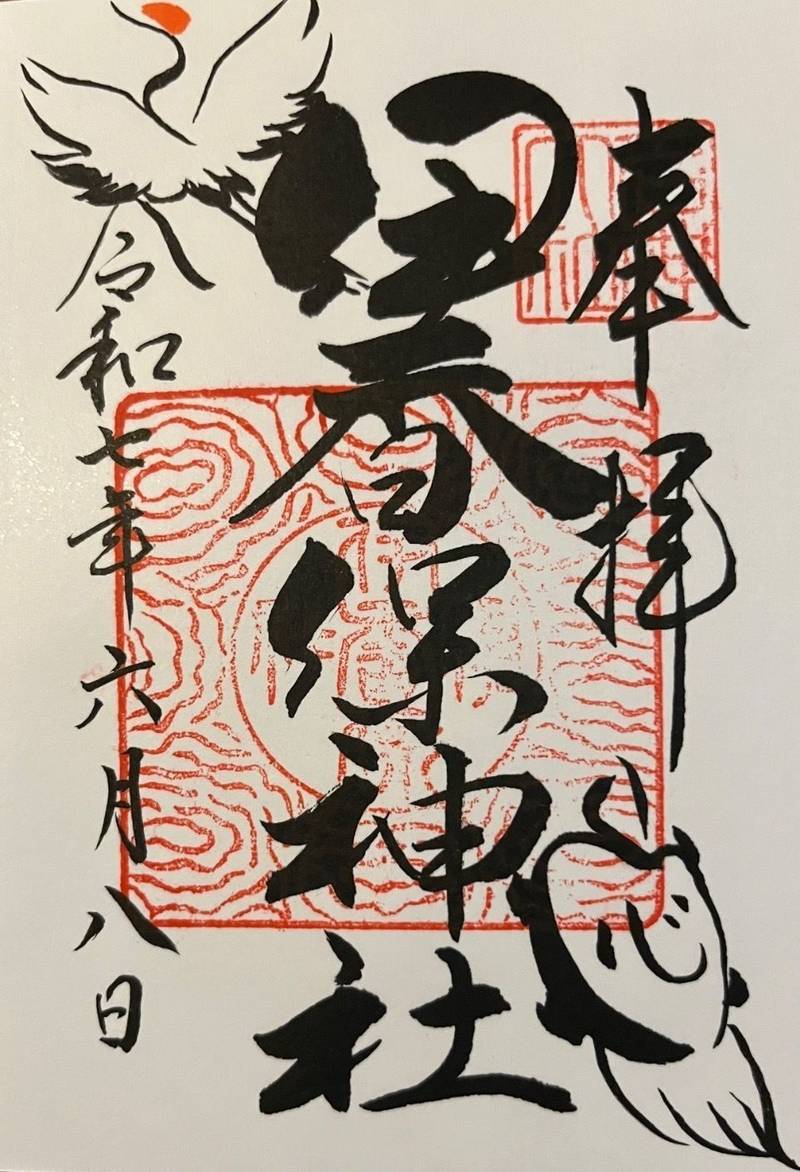 奉拝
伊香保神社
令和七年六月八日
心